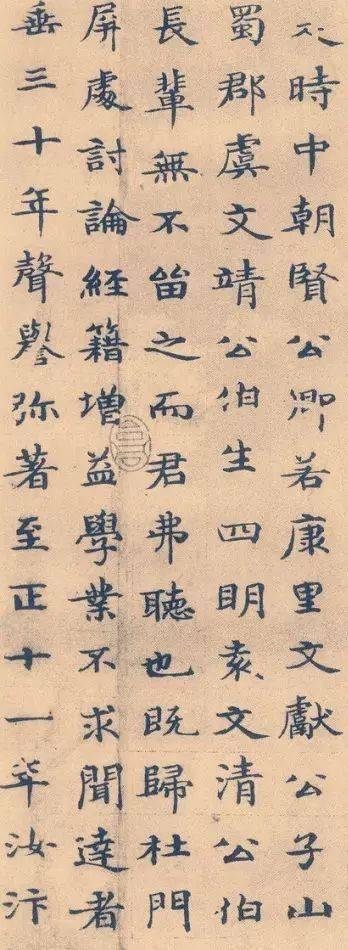 不時中朝賢公卿若康里文獻公子山
蜀郡虞文靖公伯生四明袁文清公伯
長輩無不留之而君弗聴也既歸杜門
屏處討論經籍增益學業不求聞達者
垂三十年聲譽弥著至正十一年汝汴